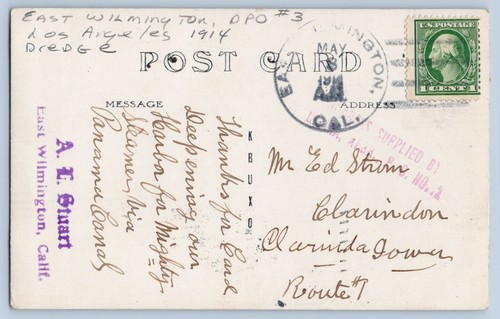 EAST WILMINGTON, DPO #3
Los Angeles 1914
Dredge
POST CARD
EAST WILMINGTON,
MAY
8
1914
A.M.
CAL.
U.S. POSTAGE
1 CENT 1
MESSAGE
ADDRESS
SUPPLIED BY
NO. 2
KRUXO
A. L. Stuart
East Wilmington, Calif.
Thanks for Card
Deepening our
Harbor for Mighty
Steamers Via
Panama Canal
Mr Ed Strom
Clarindon
Clarinda Iowa
Route #1